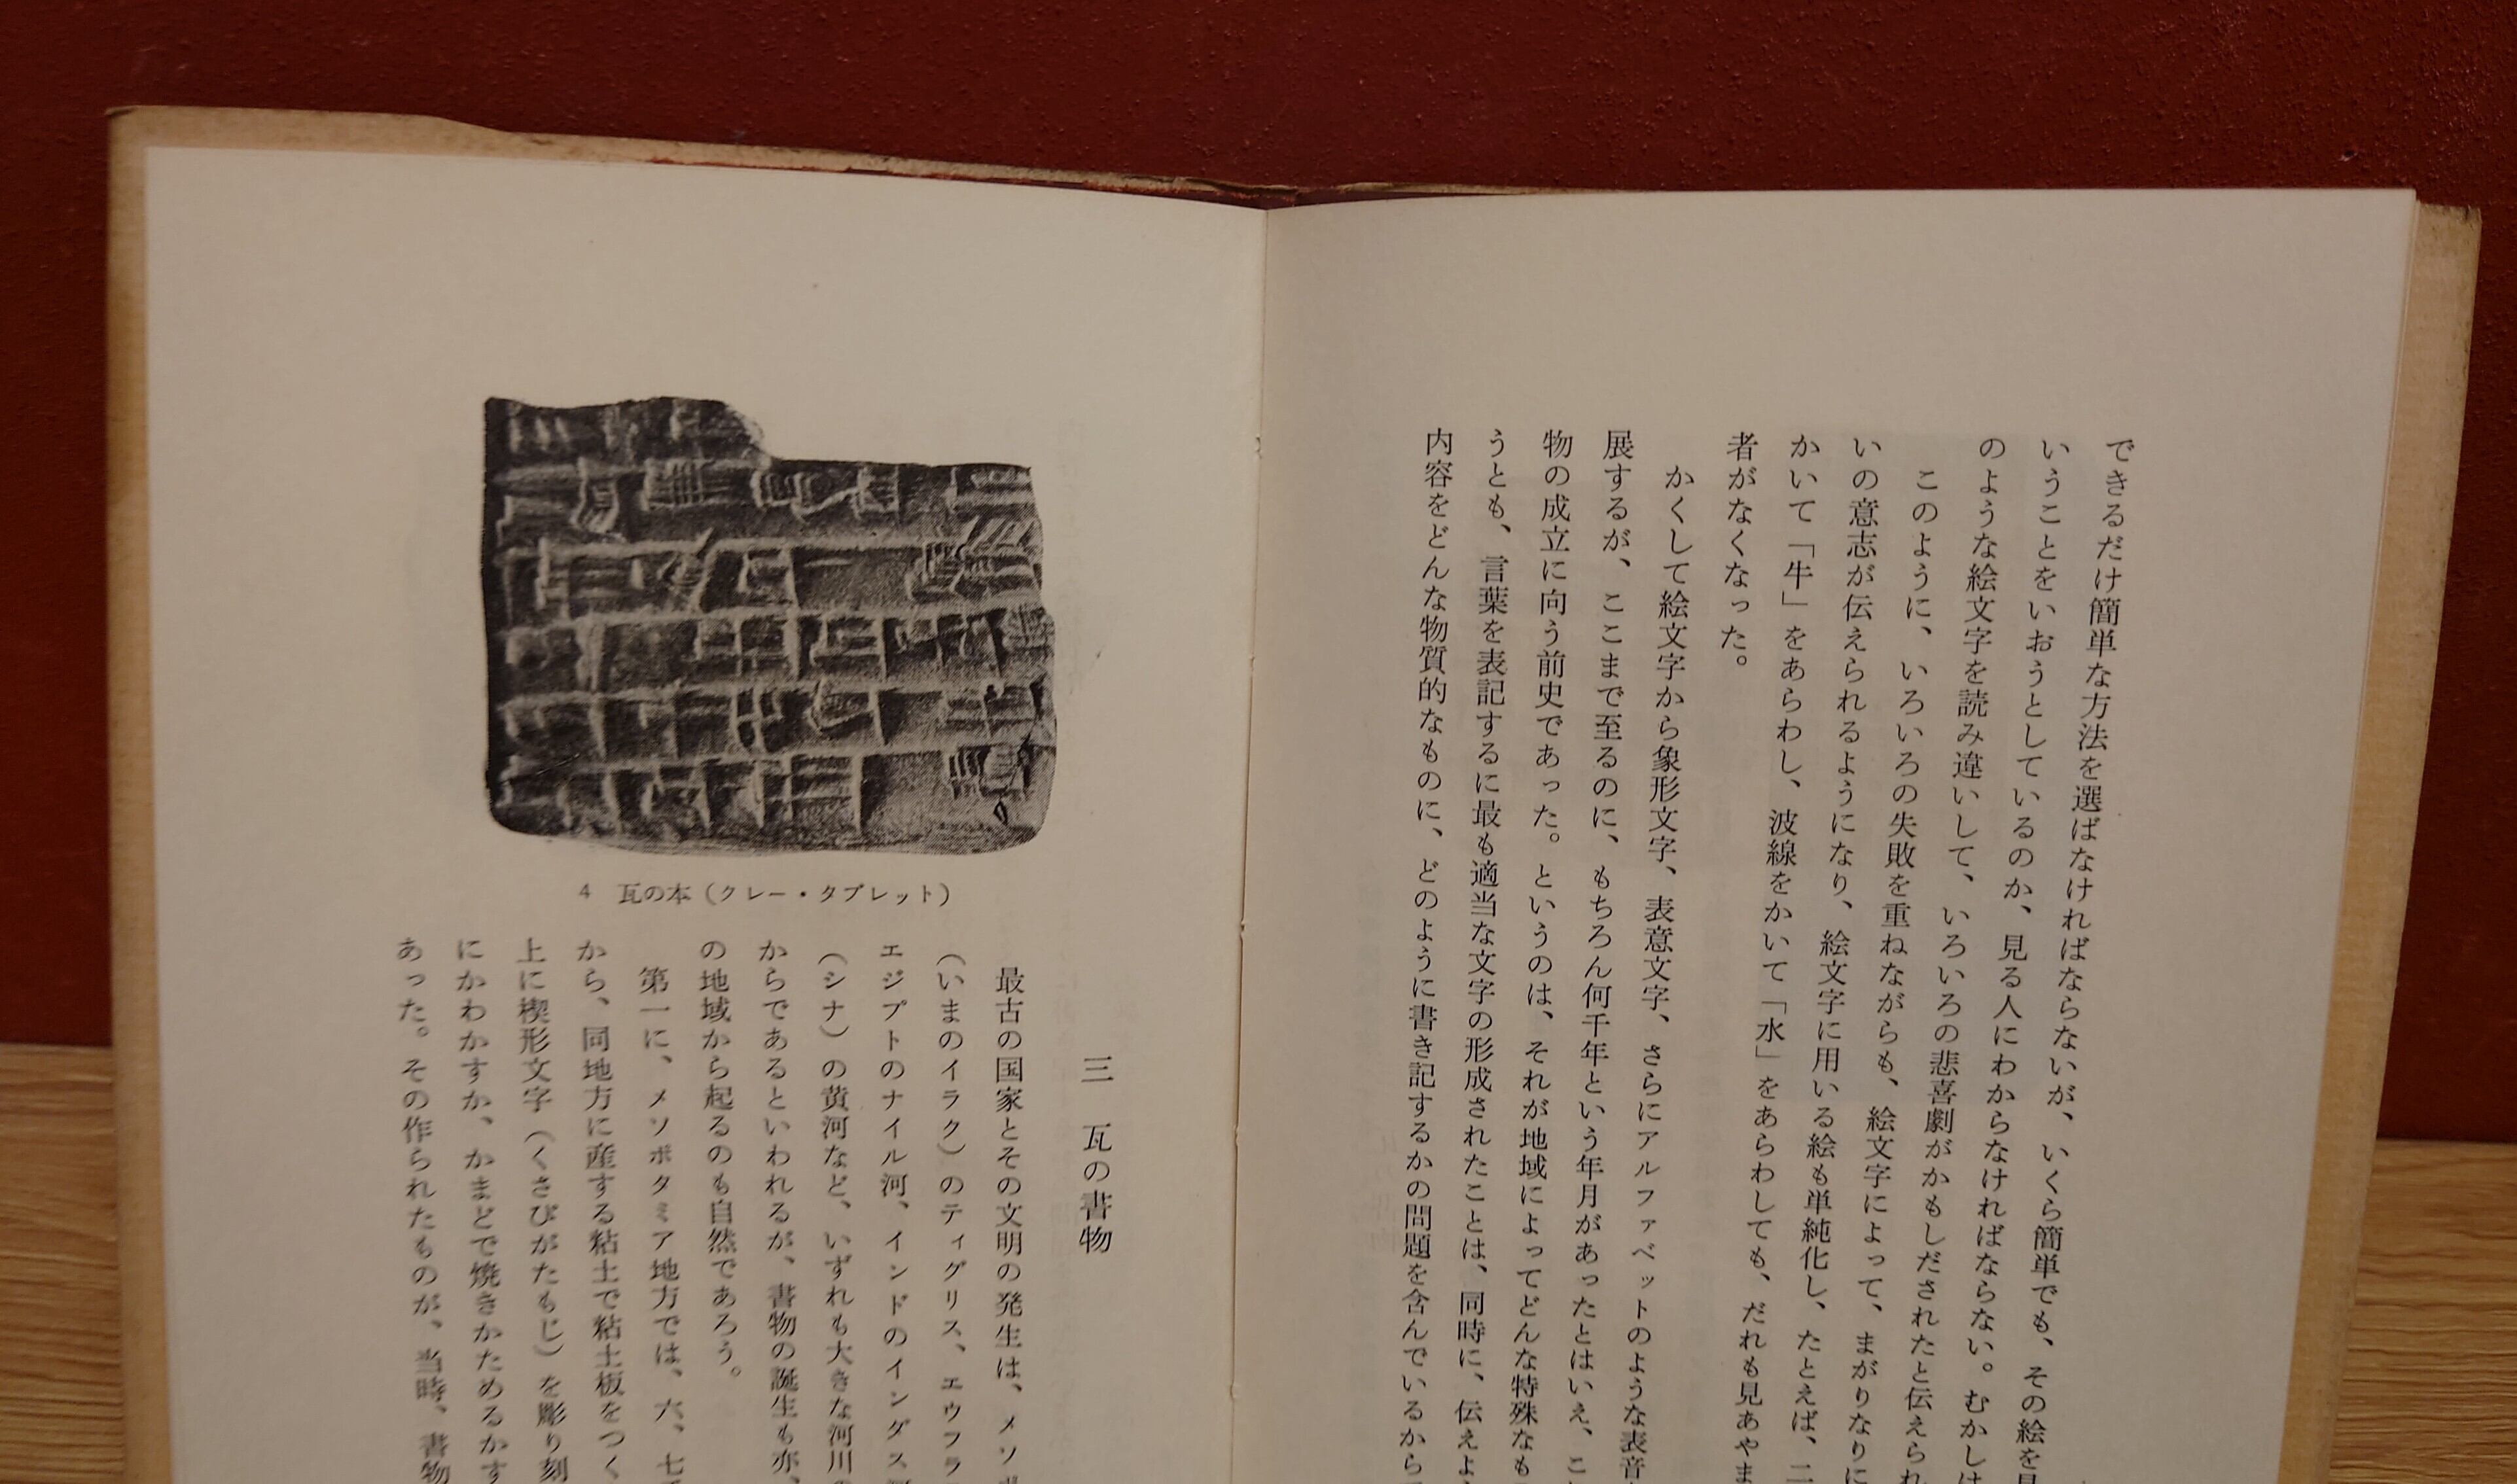 できるだけ簡単な方法を選ばなければならないが、いくら簡単でも、その絵を見
いうことをいおうとしているのか、見る人にわからなければならない。むかしは
のような絵文字を読み違いして、いろいろの悲喜劇がかもしだされたと伝えられ
このように、いろいろの失敗を重ねながらも、絵文字によって、まがりなりに
いの意志が伝えられるようになり、絵文字に用いる絵も単純化し、たとえば、二
かいて「牛」をあらわし、波線をかいて「水」をあらわしても、だれも見あやま
者がなくなった。
かくして絵文字から象形文字、表意文字、さらにアルファベットのような表音
展するが、ここまで至るのに、もちろん何千年という年月があったとはいえ、こ
物の成立に向う前史であった。というのは、それが地域によってどんな特殊なも
うとも、言葉を表記するに最も適当な文字の形成されたことは、同時に、伝えよ
内容をどんな物質的なものに、どのように書き記するかの問題を含んでいるから
4 瓦の本(クレー・タブレット)
三 瓦の書物
最古の国家とその文明の発生は、メソポ
(いまのイラク)のティグリス、エウフラ
エジプトのナイル河、インドのインダス河
(シナ)の黄河など、いずれも大きな河川の
からであるといわれるが、書物の誕生も亦、
の地域から起るのも自然であろう。
第一に、メソポタミア地方では、六、七千
から、同地方に産する粘土で粘土板をつく
上に楔形文字(くさびがたもじ)を彫り刻
にかわかすか、かまどで焼きかためるかす
あった。その作られたものが、当時、書物